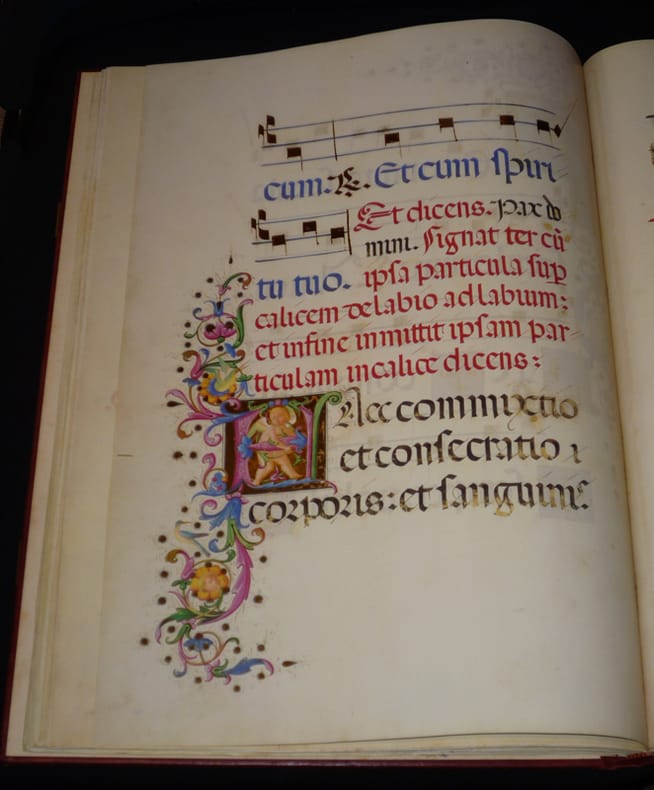 cum. ℟. Et cum spiri
Et dicens. Pax do
mini. Signat ter cū
tu tuo. ipsa particula sup
calicem de labio ad labium;
et in fine inmittit ipsam par-
ticulam in calice dicens:
Haec commixtio
et consecratio
corporis: et sanguinis.